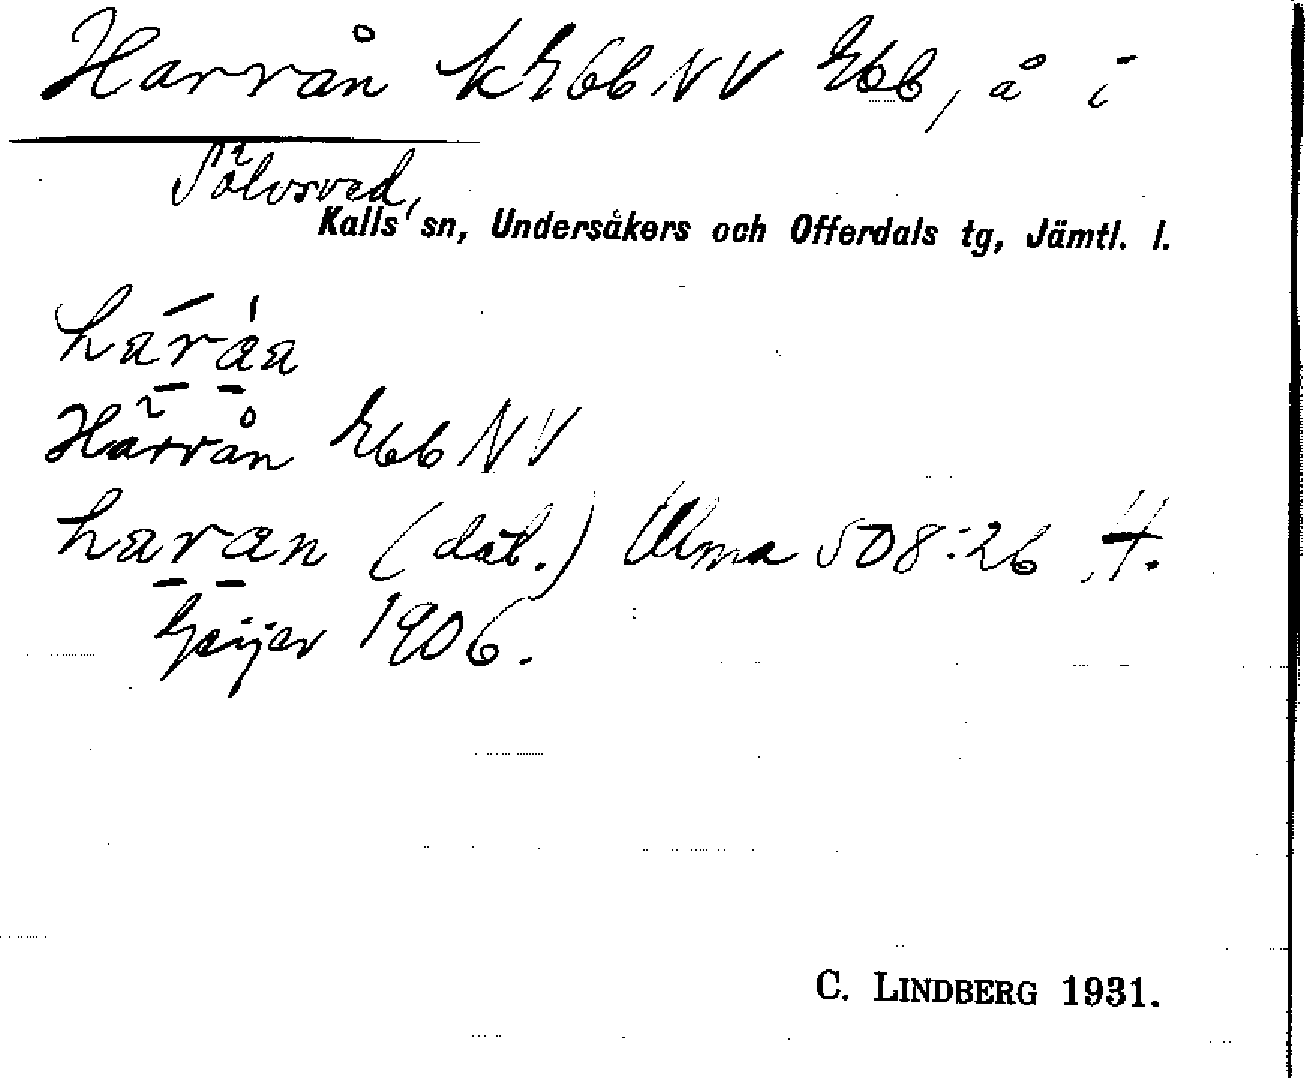 Harrån k Ebb NV Ebb, å i
Sölvsved,
Kalls sn, Undersåkers och Offerdals tg, Jämtl. l.
haråa
Härrån Ebb NV
haran (dat.) Ulma 508:26 H.
Geijer 1906.
C. LINDBERG 1931.